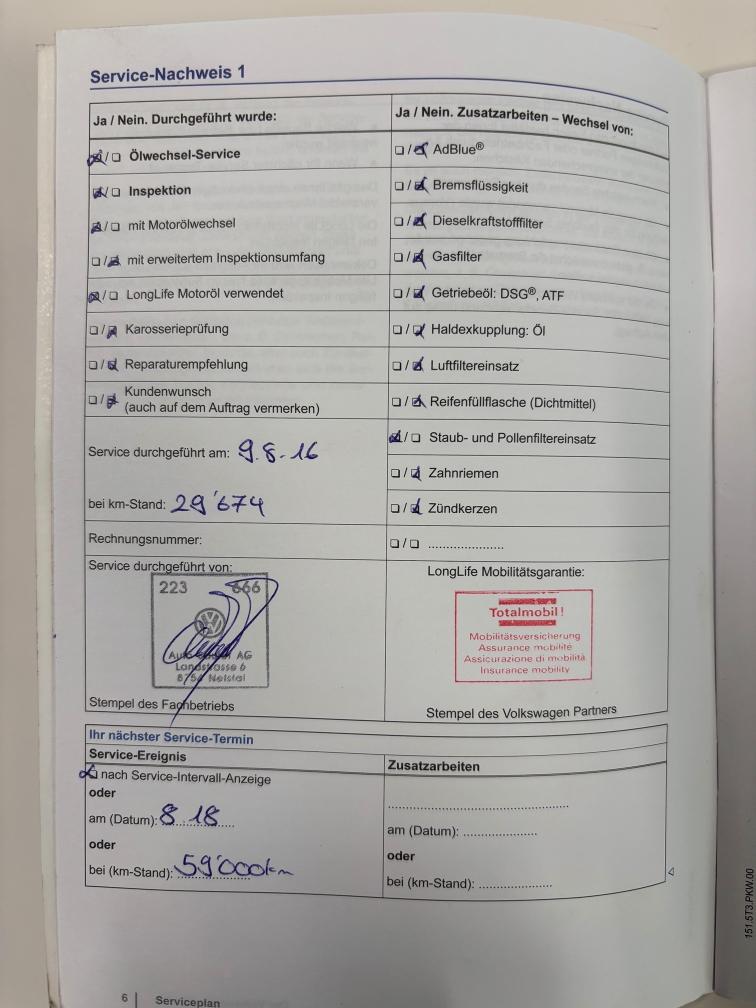 Service-Nachweis 1
Ja / Nein. Durchgeführt wurde:
☒/☐ Ölwechsel-Service
☒/☐ Inspektion
☒/☐ mit Motorölwechsel
☐/☒ mit erweitertem Inspektionsumfang
☒/☐ LongLife Motoröl verwendet
☐/☒ Karosserieprüfung
☐/☒ Reparaturempfehlung
☐/☒ Kundenwunsch
(auch auf dem Auftrag vermerken)
Service durchgeführt am: 9.8.16
bei km-Stand: 29'674
Rechnungsnummer:
Service durchgeführt von:
223 666
AG
Landstrasse 6
8754 Netstal
Stempel des Fachbetriebs
Ja / Nein. Zusatzarbeiten – Wechsel von:
☐/☒ AdBlue®
☐/☒ Bremsflüssigkeit
☐/☒ Dieselkraftstofffilter
☐/☒ Gasfilter
☐/☒ Getriebeöl: DSG®, ATF
☐/☒ Haldexkupplung: Öl
☐/☒ Luftfiltereinsatz
☐/☒ Reifenfüllflasche (Dichtmittel)
☒/☐ Staub- und Pollenfiltereinsatz
☐/☒ Zahnriemen
☐/☒ Zündkerzen
☐/☐ .....................
LongLife Mobilitätsgarantie:
Totalmobil!
Mobilitätsversicherung
Assurance mobilité
Assicurazione di mobilità
Insurance mobility
Stempel des Volkswagen Partners
Ihr nächster Service-Termin
Service-Ereignis
☒ nach Service-Intervall-Anzeige
oder
am (Datum): 8.18
oder
bei (km-Stand): 59'000km
Zusatzarbeiten
..................................................
am (Datum): ....................
oder
bei (km-Stand): ....................
6 | Serviceplan
151.5T3.PKW.00